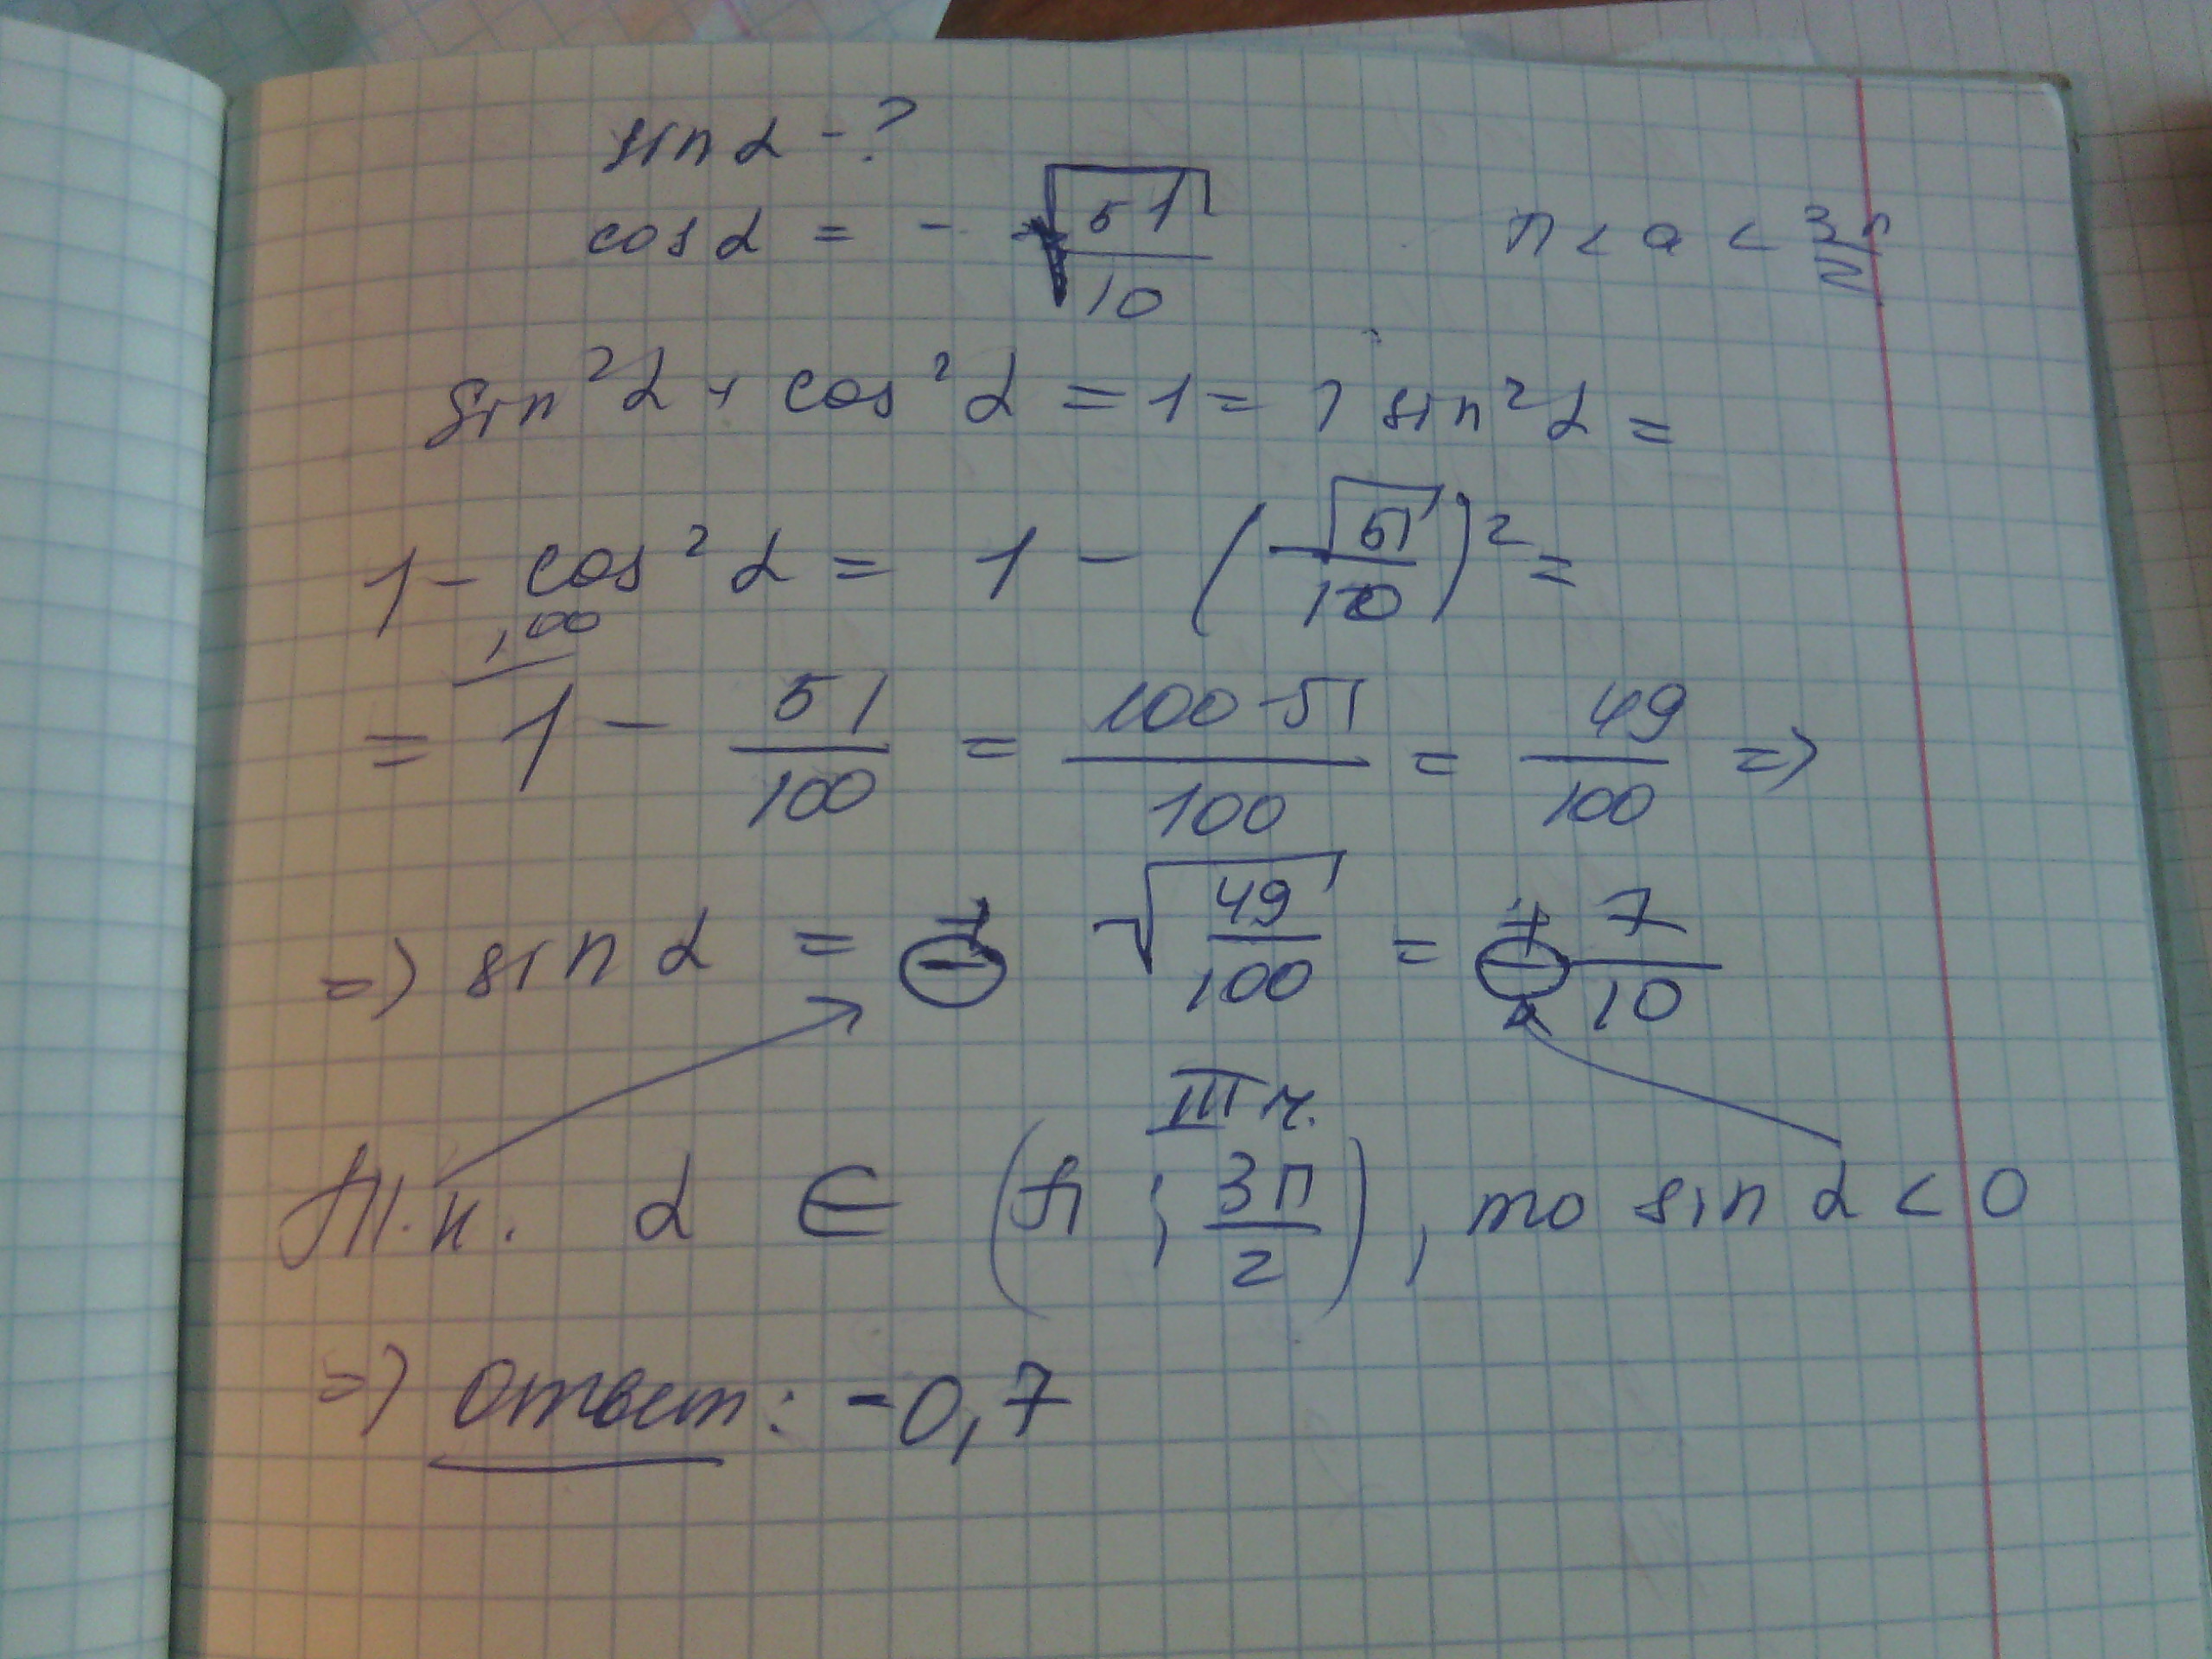 sin α - ?
cos α = - √51/10 π < a < 3π/2
sin²α + cos²α = 1 => sin²α =
1 - cos²α = 1 - (-√51/10)² =
= 1\100 - 51/100 = 100-51/100 = 49/100 =>
=> sin α = ± √49/100 = ± 7/10
III ч.
Т.к. α ∈ (π ; 3π/2), то sin α < 0
=> Ответ: -0,7